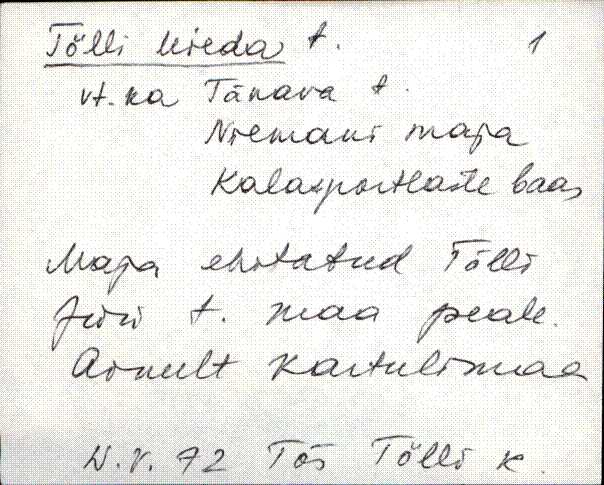 Tõlli Krieda t. 1
vt. ka Tänava t.
Niemani maja
Kalasportlaste baas
Maja ehitatud Tõlli
Jüri t. maa peale.
Ainult Kartulimaa
N.V. 72 Tõs Tõlli k